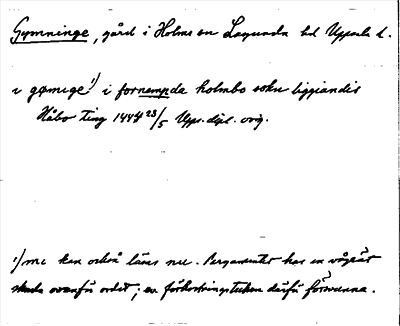 Gymninge, gård i Holms sn Lagunda hd Uppsala l.
i gømige 1) i fornempda holmbo sokn liggiandis
Håbo ting 1444 23/5 Upps. dipl. orig.
1/ mi kan också läsas nu. Pergamentet har en vågrät
skada ovanför ordet; ev. förkortningstecken därför försvunna.